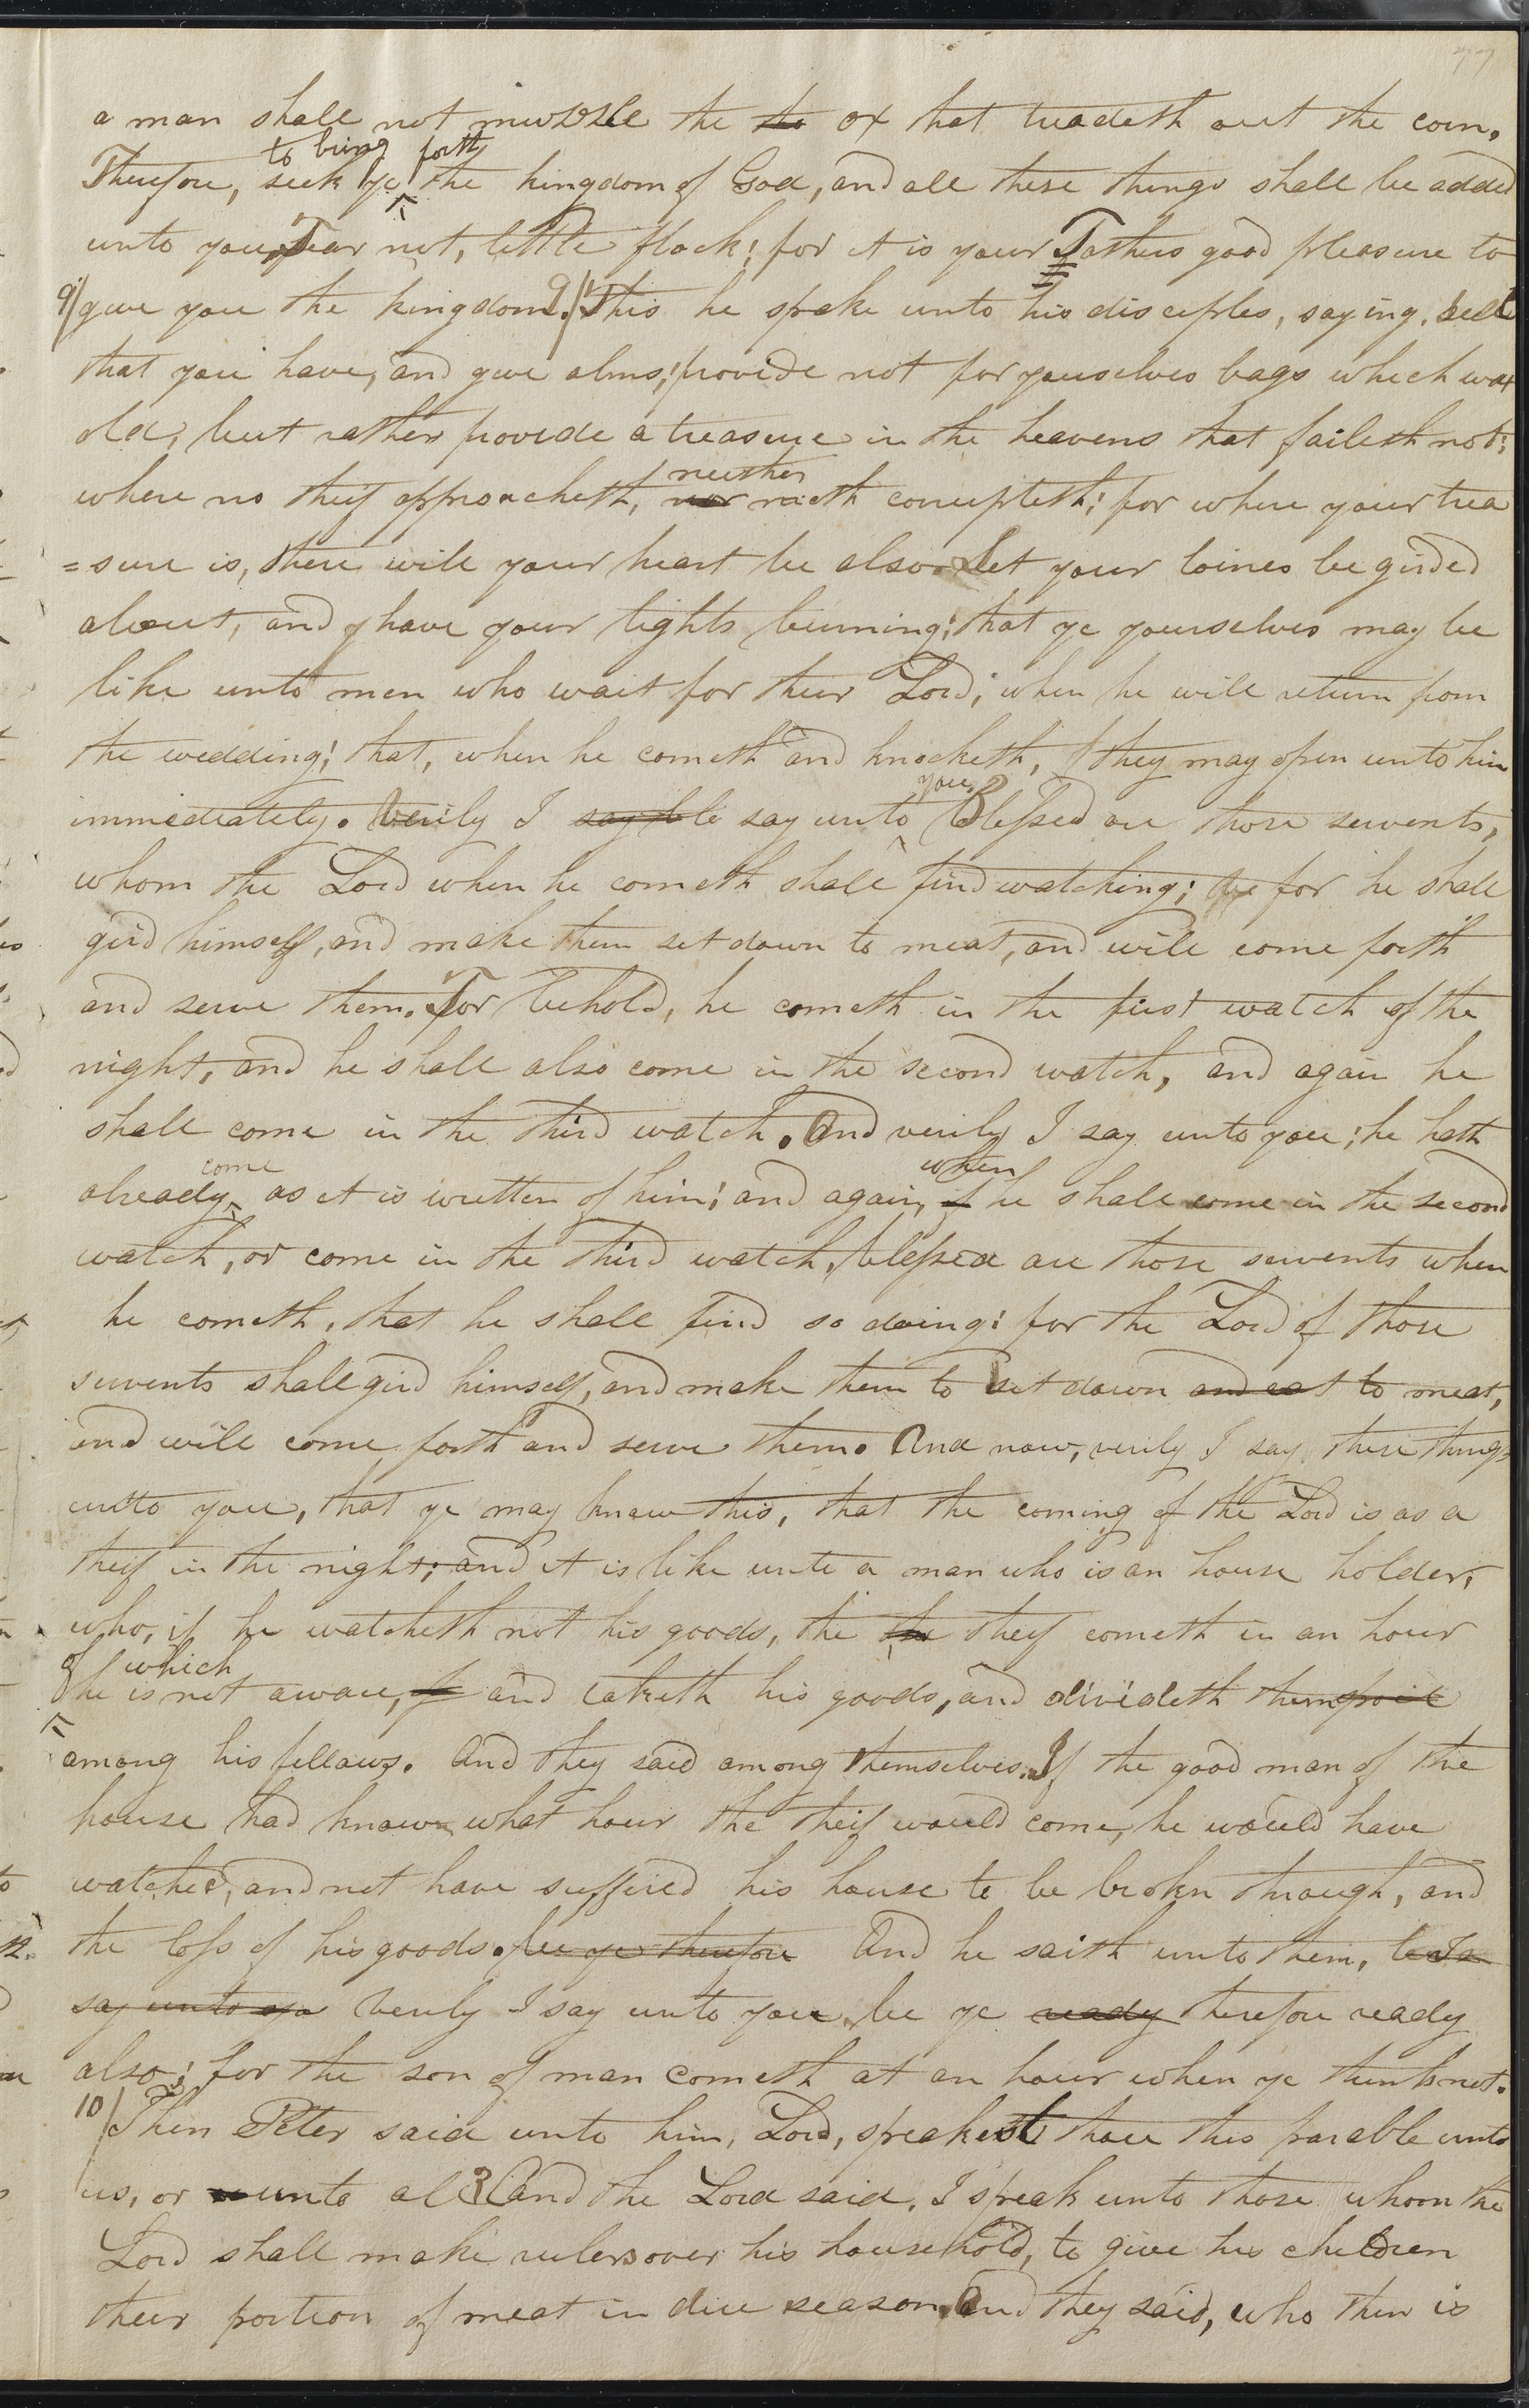 77
a man shall not muzzle the the ox that treadeth out the corn.
to bring forth
Therefore, seek ye the kingdom of God, and all these things shall be added
unto you. Fear not, little flock; for it is your Fathers good pleasure to
9/ give you the kingdom. 9/ This he spake unto his disciples, saying, Sell
that you have, and give alms; provide not for yourselves bags which wax
old, but rather provide a treasure in the heavens that faileth not;
neither
where no theif approacheth, nor moth corrupteth; for where your trea
=sure is, there will your heart be also. Let your loines be girded
about, and have your lights burning; that ye yourselves may be
like unto men who wait for their Lord; when he will return from
the wedding; that, when he cometh and knocketh, they may open unto him
you,
immediately. Verily I say unto Blessed are those servents,
whom the Lord when he cometh shall find watching; for he shall
gird himself, and make them set down to meat, and will come forth
and serve them. For behold, he cometh in the first watch of the
night, and he shall also come in the second watch, and again he
shall come in the third watch. And verily I say unto you; he hath
come when
already as it is written of him; and again, if he shall come in the second
watch, or come in the third watch, blessed are those servents when
he cometh, that he shall find so doing; for the Lord of those
servents shall gird himself, and make them to set down and eat to meat,
and will come forth and serve them. And now, verily I say these things
unto you, that ye may know this, that the coming of the Lord is as a
theif in the night; and it is like unto a man who is an house holder,
who, if he watcheth not his goods, the the theif cometh in an hour
of which
he is not aware, and taketh his goods, and divideth them
among his fellows. And they said among themselves. If the good man of the
house had known what hour the theif would come, he would have
watched, and not have suffired his house to be brokn through, and
the loss of his goods. be ye therefore And he saith unto them,
say unto Verily I say unto you be ye ready therefore ready
also; for the son of man cometh at an hour when ye think not.
10/ Then Peter said unto him, Lord, speakest thou this parable unto
us, or unto all? And the Lord said, I speak unto those whom the
Lord shall make rulers over his household, to give his children
their portion of meat in due season. And they said, who then is